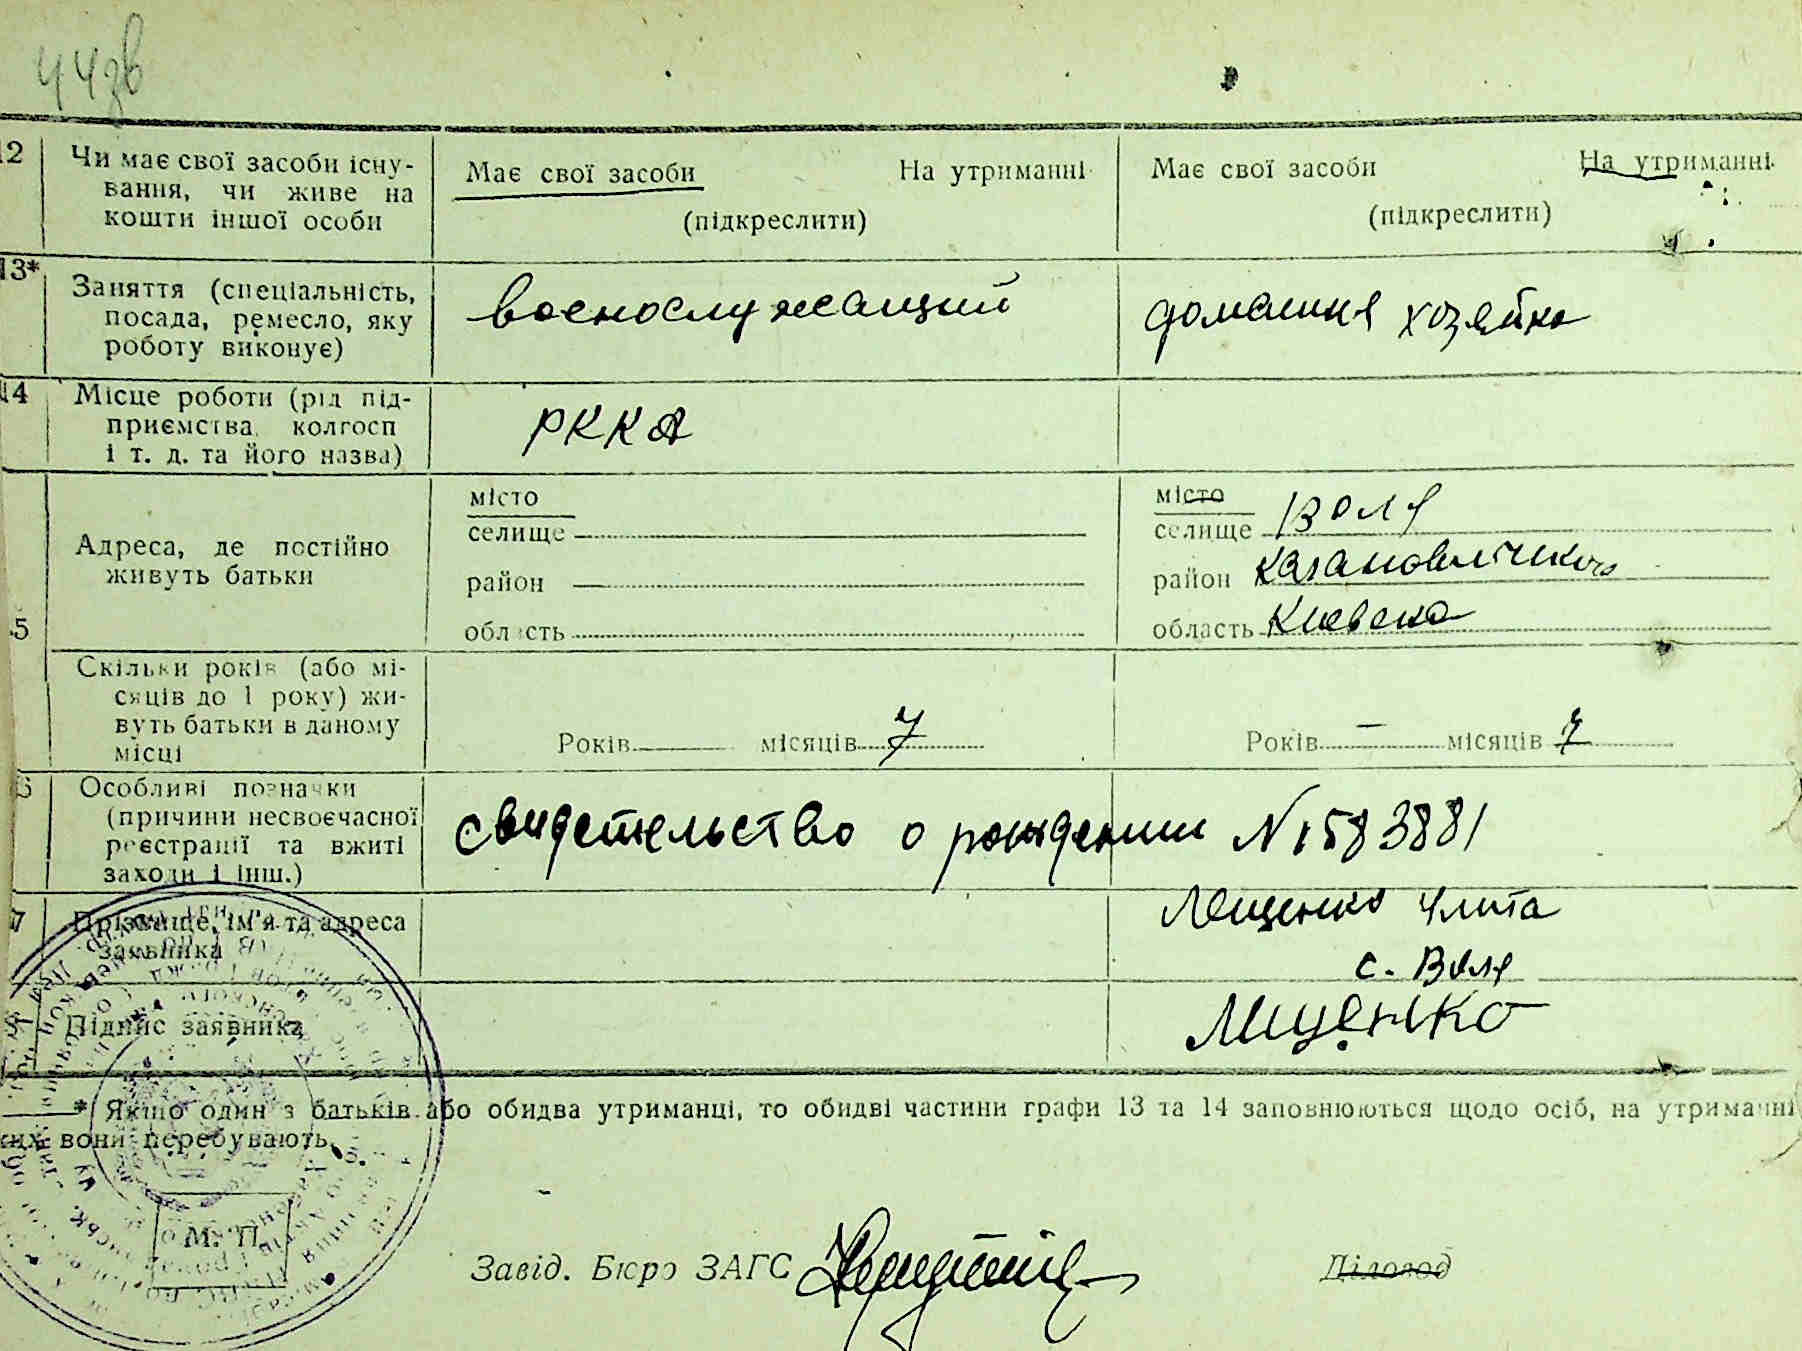 44зв
12 Чи має свої засоби існу-
вання, чи живе на
кошти іншої особи
Має свої засоби На утриманні
(підкреслити)
Має свої засоби На утриманні
(підкреслити)
13* Заняття (спеціальність,
посада, ремесло, яку
роботу виконує)
военослужащий
домашня хозяйка
14 Місце роботи (рід під-
приємства, колгосп
і т. д. та його назва)
РККА
Адреса, де постійно
живуть батьки
місто
селище
район
область
місто
селище Воля
район
область Киевска
5
Скільки років (або мі-
сяців до 1 року) жи-
вуть батьки в даному
місці
Років місяців 7
Років — місяців 7
6 Особливі позначки
(причини несвоєчасної
реєстрації та вжиті
заходи і інш.)
свидетельство о рождении N 1583881
7 Прізвище, ім'я та адреса
заявника
Лещенко Улита
с. Воля
8 Підпис заявника
Лищенко
* Якщо один з батьків або обидва утриманці, то обидві частини графи 13 та 14 заповнюються щодо осіб, на утриманні
ких вони перебувають.
М. П.
Завід. Бюро ЗАГС
Діловод